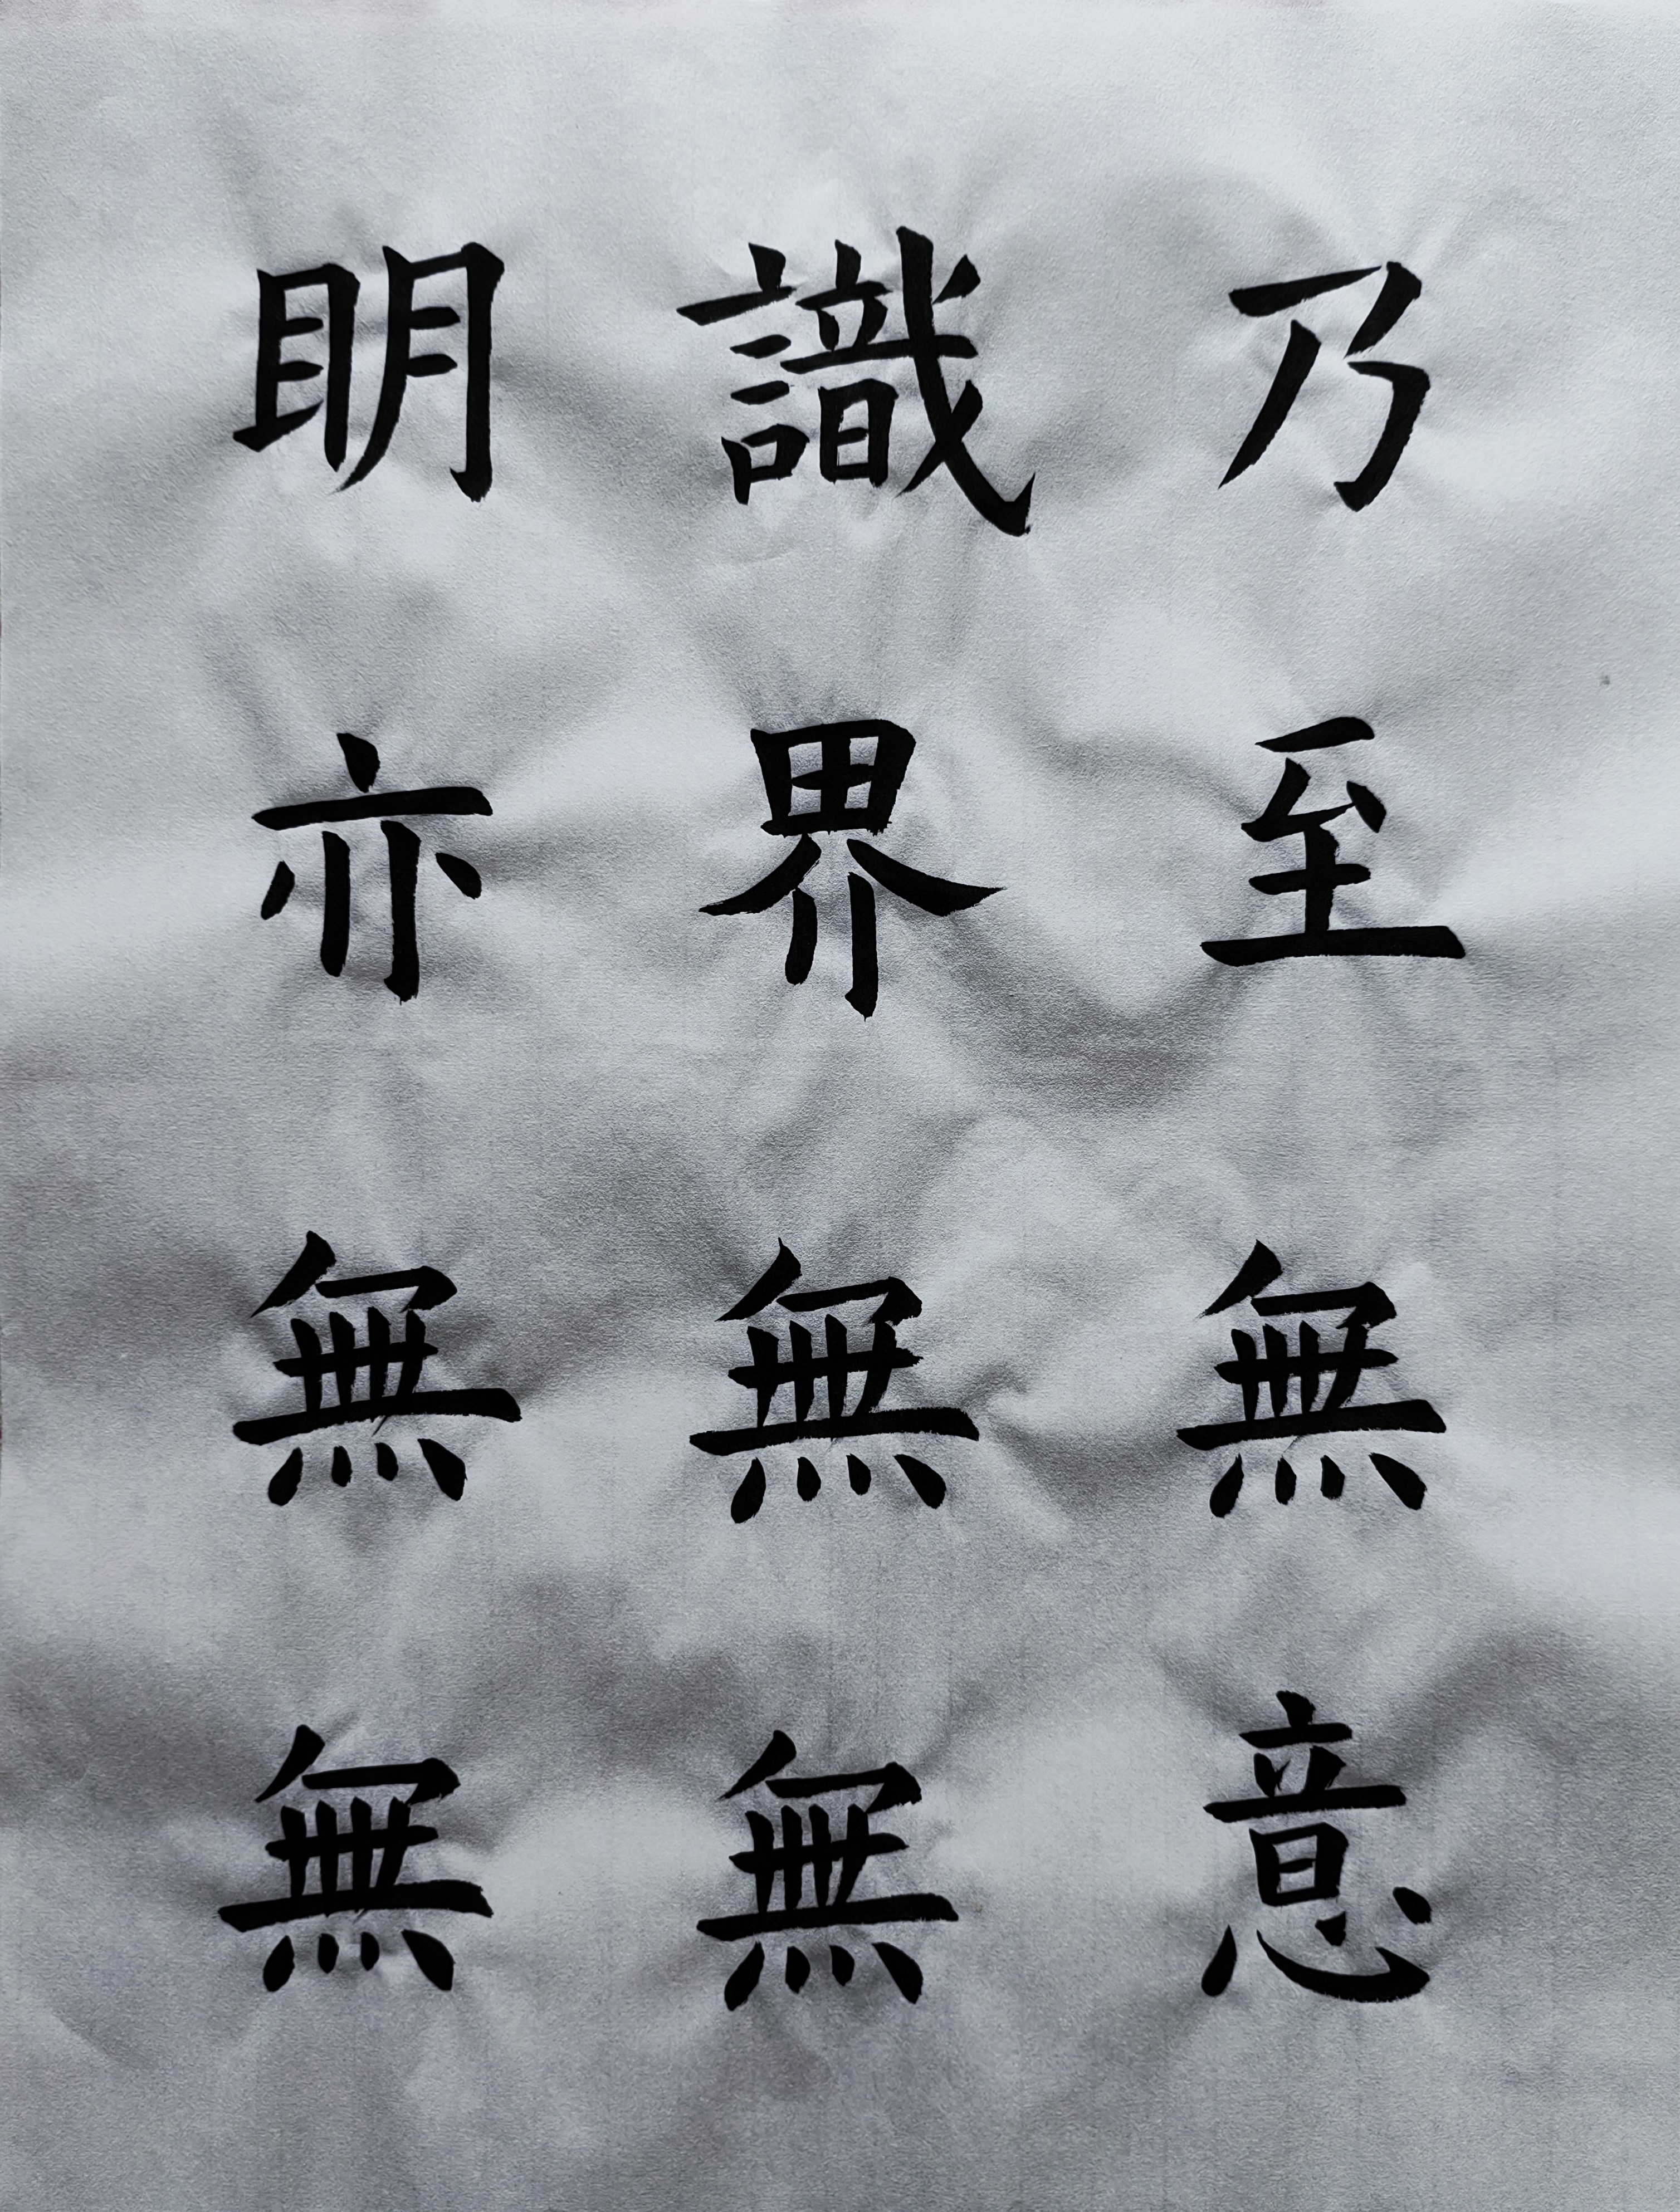 乃至無意
識界無無
明亦無無